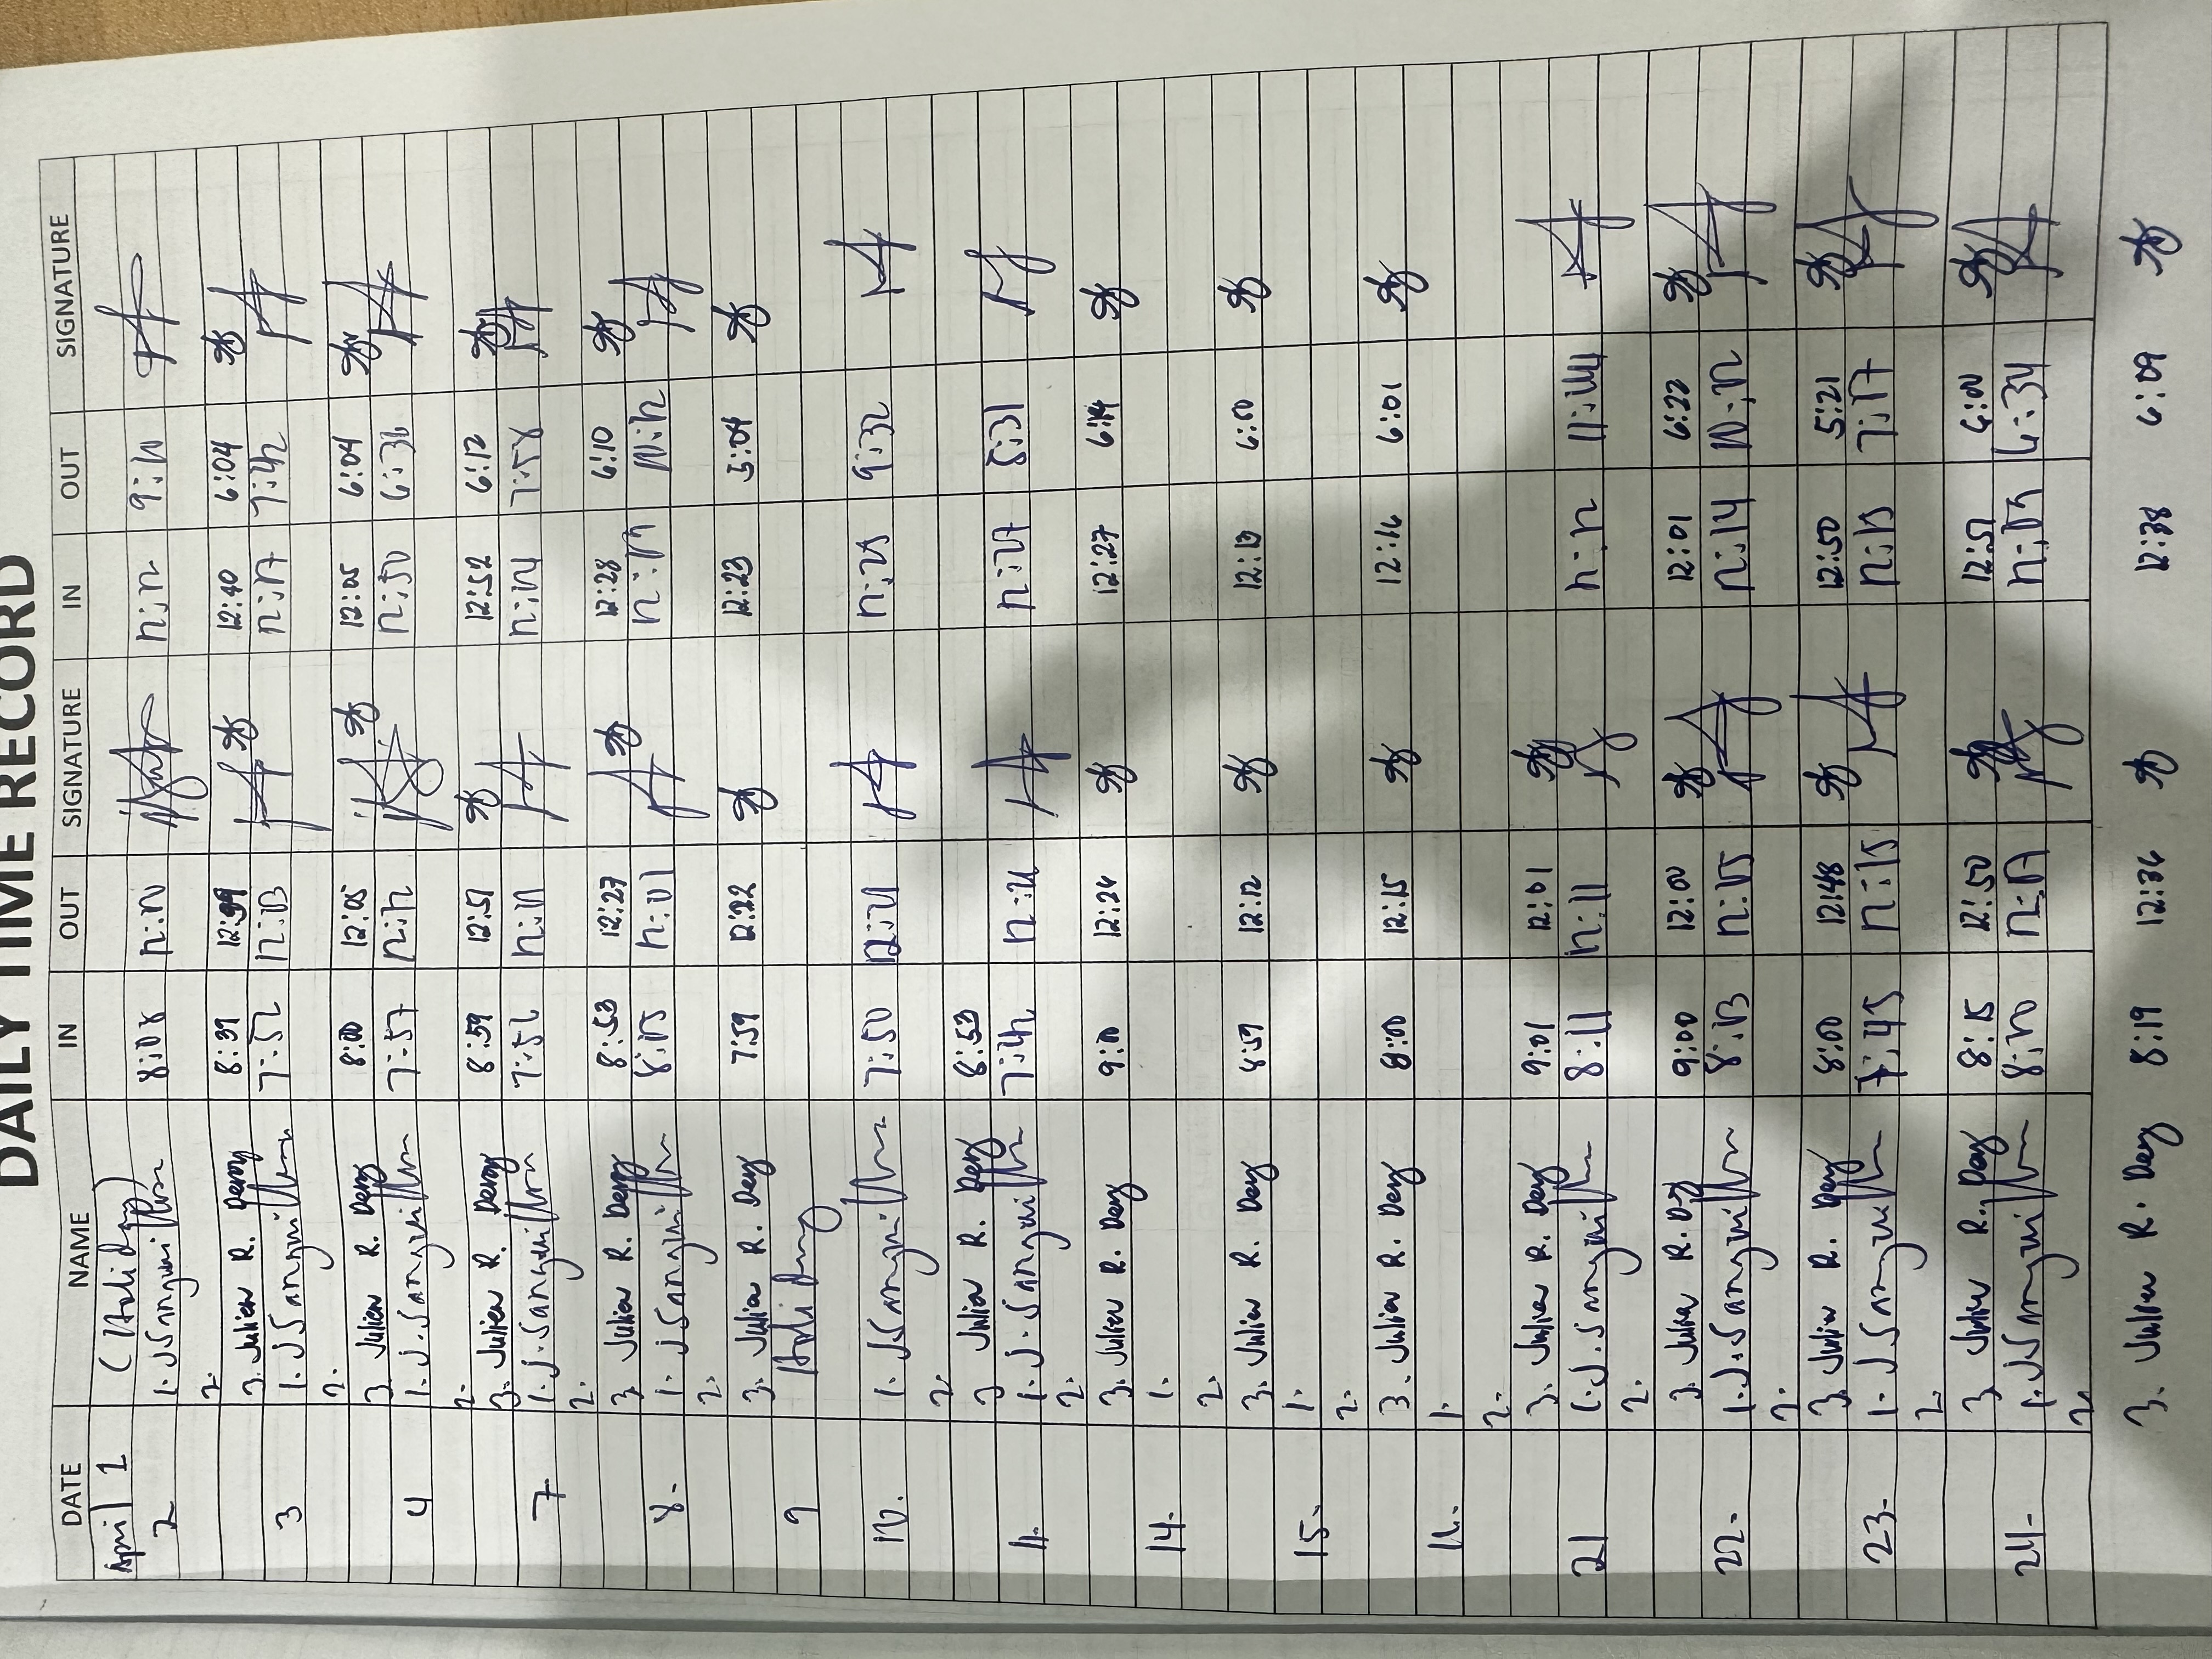 DAILY TIME RECORD
DATE NAME IN OUT SIGNATURE IN OUT SIGNATURE
April 1 (Holiday)
2 1. J. Sangui 8:08 12:10 12:12 9:10
2.
3. Julien R. Deny 8:39 12:39 12:40 6:04
3 1. J. Sangui 7:52 12:13 12:17 7:42
2.
3. Julien R. Deny 8:00 12:05 12:05 6:04
4 1. J. Sangui 7:57 12:12 12:50 6:36
2.
3. Julien R. Deny 8:59 12:51 12:52 6:12
7 1. J. Sangui 7:52 12:11 12:14 7:58
2.
3. Julien R. Deny 8:53 12:27 12:28 6:10
8. 1. J. Sangui 8:05 12:01 12:09 10:12
2.
3. Julien R. Deny 7:59 12:22 12:23 5:04
9 Holiday
10. 1. J. Sangui 7:50 12:21 12:25 9:32
2.
3. Julien R. Deny 8:53
11. 1. J. Sangui 7:42 12:26 12:27 8:31
2.
3. Julien R. Deny 9:00 12:26 12:27 6:14
14. 1.
2.
3. Julien R. Deny 8:59 12:12 12:13 6:00
15. 1.
2.
3. Julien R. Deny 8:00 12:15 12:16 6:01
16. 1.
2.
3. Julien R. Deny 9:01 12:01
21 1. J. Sangui 8:11 12:11 12:12 11:44
2.
3. Julien R. Deny 9:00 12:00 12:01 6:22
22. 1. J. Sangui 8:13 12:05 12:14 10:12
2.
3. Julien R. Deny 8:00 12:48 12:50 5:21
23. 1. J. Sangui 7:45 12:15 12:15 7:17
2.
3. Julien R. Deny 8:15 12:50 12:51 6:00
24. 1. J. Sangui 8:10 12:07 12:09 6:34
2.
3. Julien R. Deny 8:19 12:36 12:38 6:09